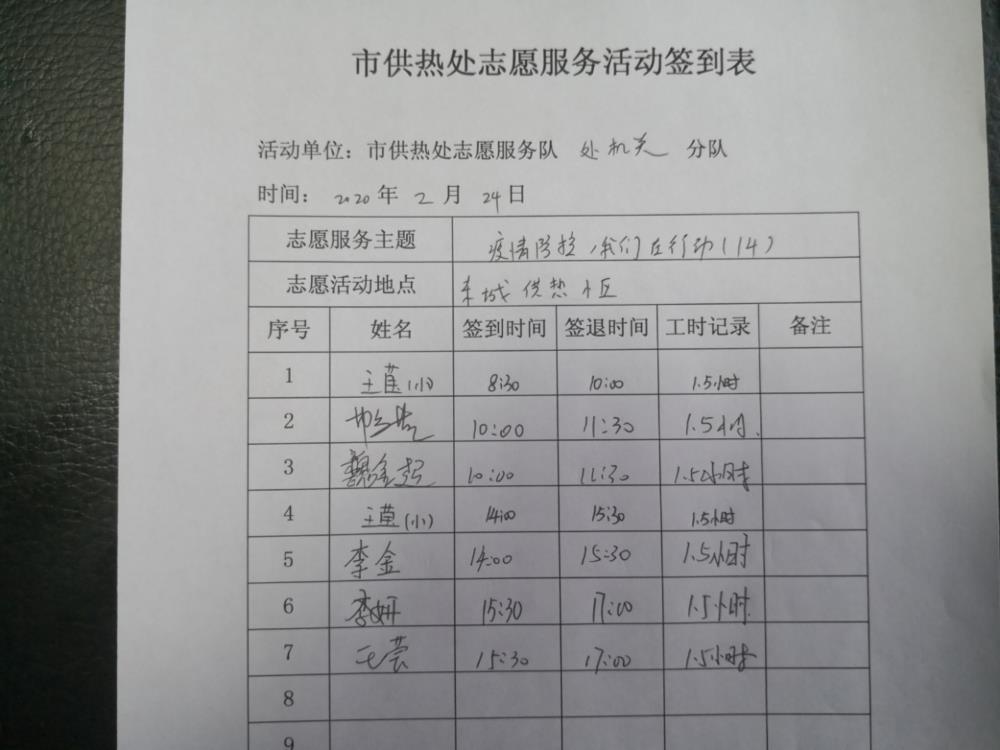 市供热处志愿服务活动签到表
活动单位：市供热处志愿服务队 处机关 分队
时间： 2020 年 2 月 24 日
志愿服务主题 疫情防控,我们在行动(14)
志愿活动地点 东城供热小区
序号 姓名 签到时间 签退时间 工时记录 备注
1 王莹(小) 8:30 10:00 1.5小时
2 10:00 11:30 1.5小时.
3 魏金起 10:00 11:30 1.5小时
4 (小) 14:00 15:30 1.5小时
5 李金 14:00 15:30 1.5小时
6 李妍 15:30 17:00 1.5小时
7 王芸 15:30 17:00 1.5小时
8
9